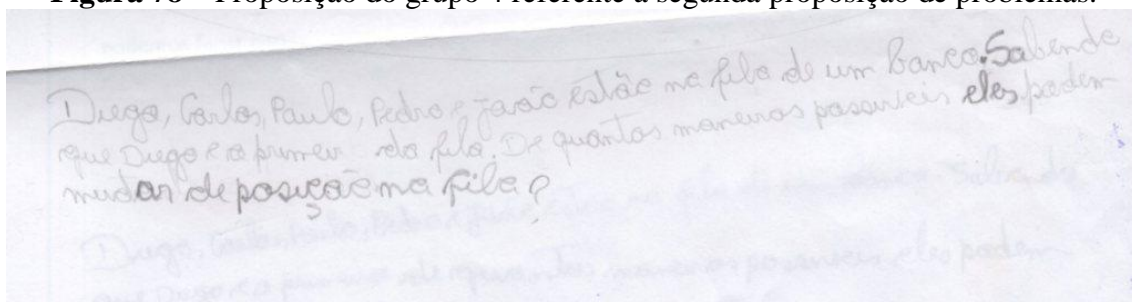 Figura 78 – Proposição do grupo 4 referente à segunda proposição de problemas.
Diego, Carlos, Paulo, Pedro e João estão na fila de um banco. Sabendo
que Diego é o primer da fila. De quantas maneiras possiveis eles podem
mudar de posição na fila?